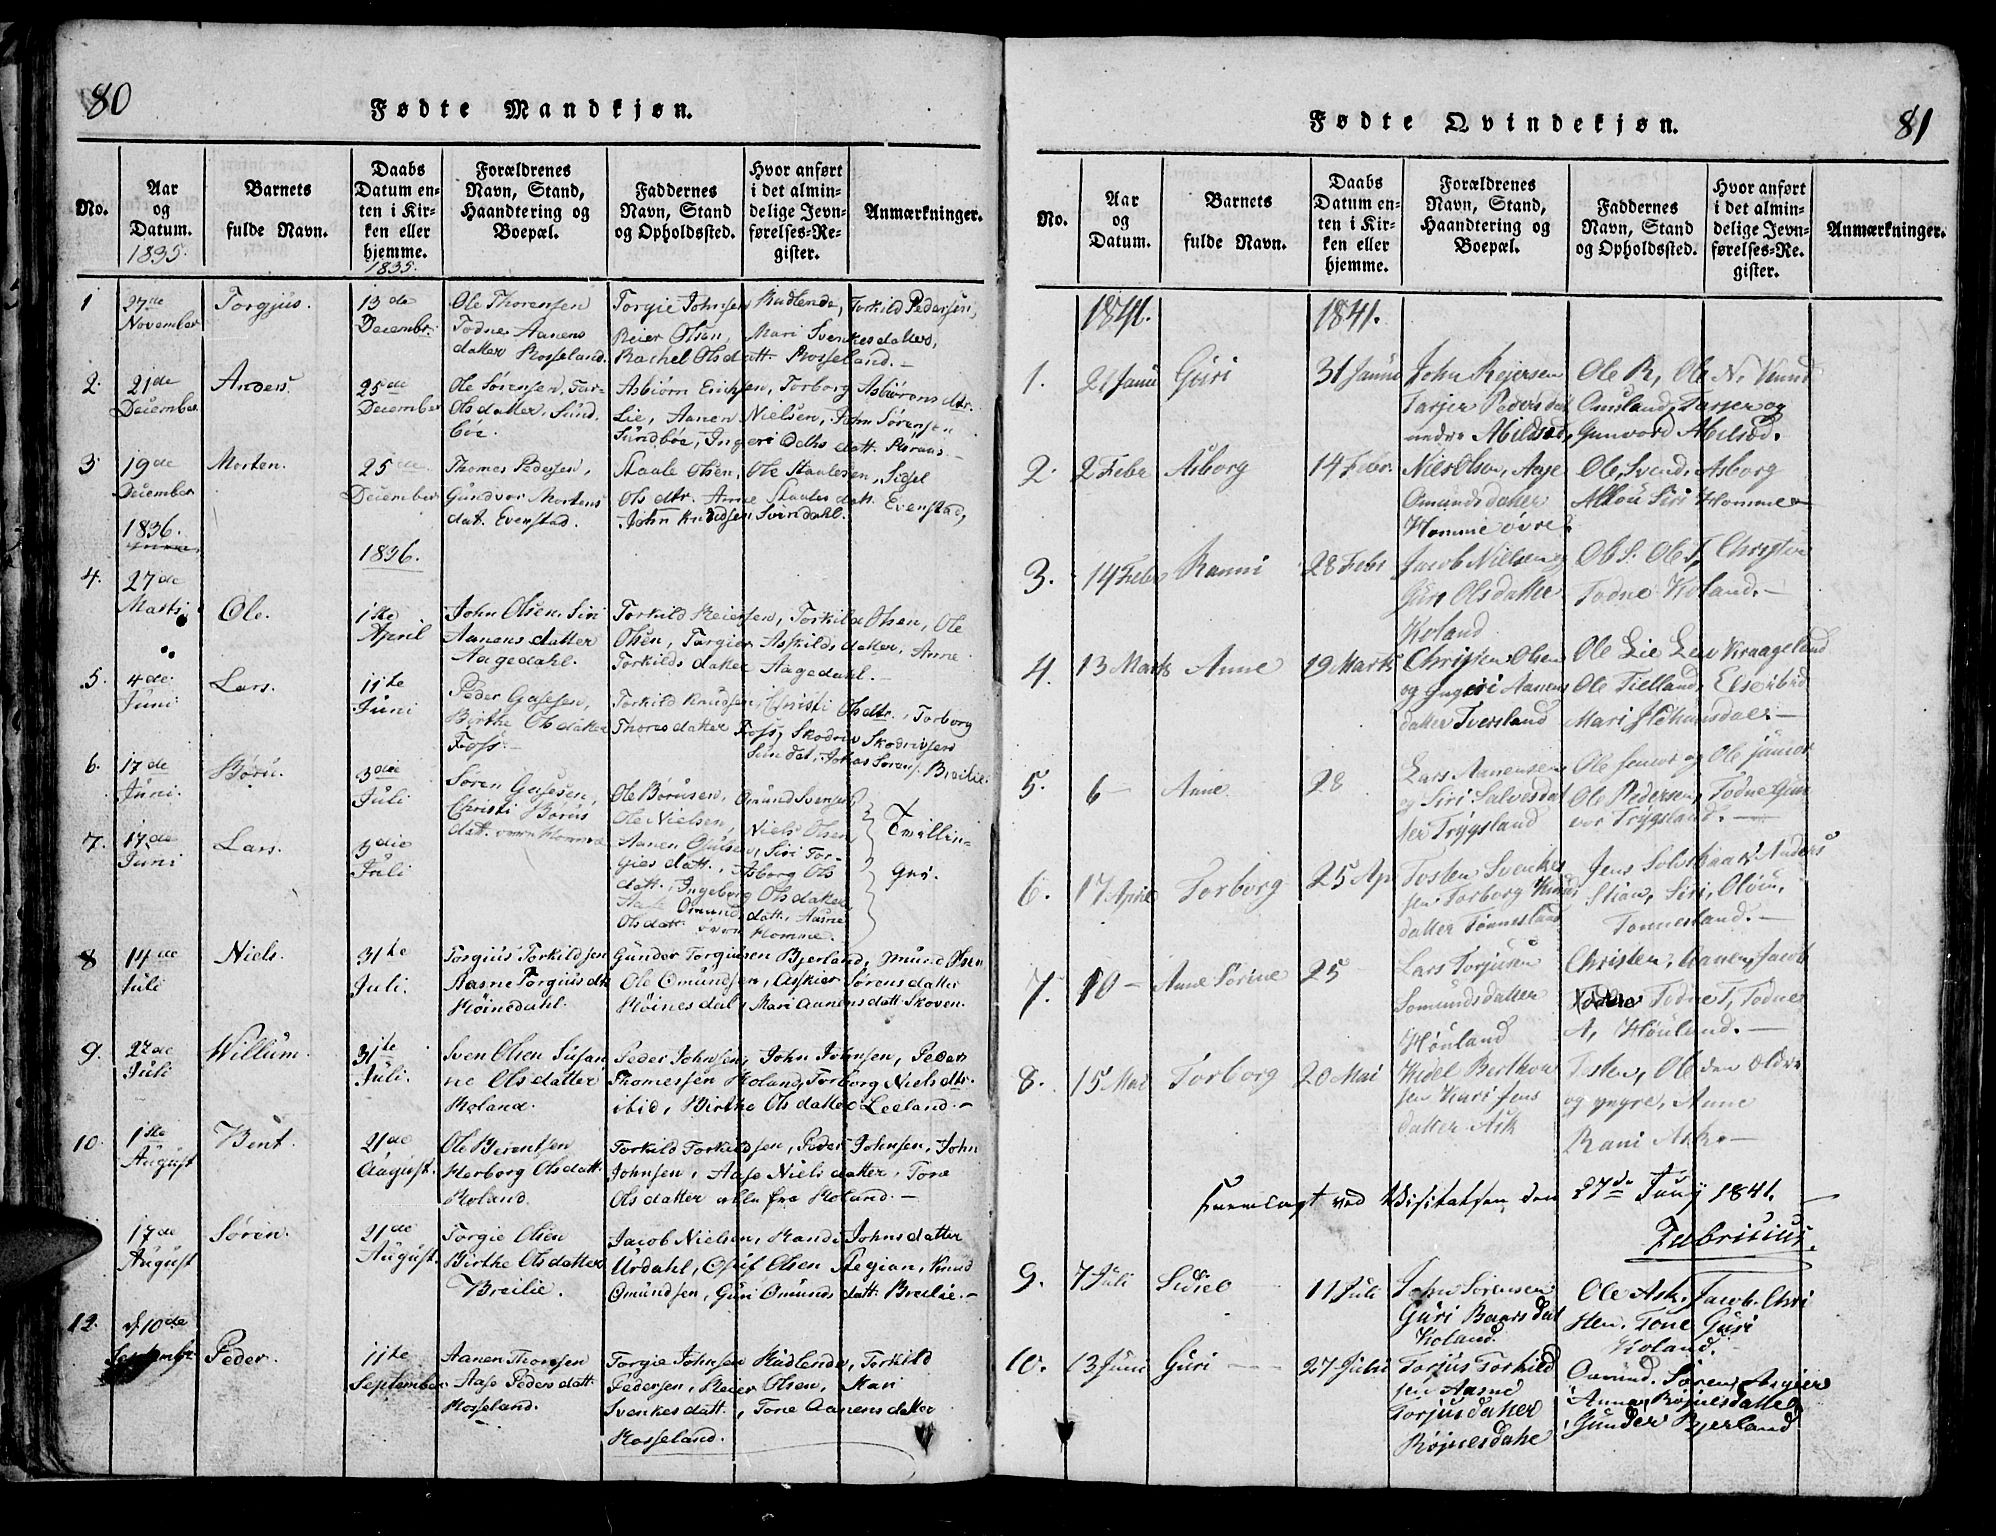 80
Fødte Mandkjøn.
No.
Aar og Datum.
1835.
Barnets fulde Navn.
Daabs Datum enten i Kirken eller hjemme.
1835.
Forældrenes Navn, Stand, Haandtering og Boepæl.
Faddernes Navn, Stand og Opholdssted.
Hvor anført i det almindelige Jevnførelses-Register.
Anmærkninger.
1 27de November Torgjus. 13de December
Ole Thorensen
Todne Aanens
datter Rosseland.
Torgie Johnsen Rudlende, Torkild Pedersen,
Reier Olsen, Mari Svenkesdatter,
Rachel Olsdatt. Rosseland.
2. 21de December Anders. 25de December
Ole Sørensen, Tar-
Olsdatter, Sund-
böe.
Asbiörn Erichsen, Torborg Asbörnsdtr.
Lie, Aanen Nielsen, John Sörensen
Sundböe, Ingeri
3 19de December Morten. 25de December
Thomas Pedersen,
Gundvor Mortens
dat. Evenstad.
Staale Olsen, Ole Staalesen, Sidsel
Olsdtr. Anne Staalesdatt. Evenstad,
John Knudsen Svindahl.
1836. 1836.
4. 27de Marts Ole. 1ste April
John Olsen, Siri
Aanensdatter
Aagedahl.
Torkild Reiersen, Torkild Olsen, Ole
Olsen, Torgier Askildsdatter, Anne
Torkildsdatter Aagedahl.
5. 4de Juni Lars. 11te Juni
Peder Gasesen,
Birthe Olsdatter
Foss.
Torkild Knudsen, Christi Olsdtr., Torborg
Thoresdatter Foss,
6. 17de Juni. Börü. 3die Juli
Sören Gasesen,
Christi Börus
datt. Homme
Ole Börusen, Omund Svensen
Ole Nielsen, Niels Olsen,
Tvillin-
ger.
7. 17de Juni Lars. 3die Juli
Aanen Siri Tor-
gies datt., Asborg Ols
datt. Ingeborg Olsdatter
Aase Omundsdatt. Aasne
Olsdatt. Homme.
8 14de Juli Niels. 31te Juli.
Torgius Torkildsen
Aasne Torgiusdtr
Höinedahl.
Gunder Torgiusen Bjerland, Omund Olsen
Ole Omundsen, Askier Sörensdatter
Höinesdal, Mari Aanensdatt. Skoven.
9. 22de Juli Willum. 31te Juli.
Sven Olsen Susan
ne Olsdatter
Roland.
Peder Johnsen, John Johnsen, Peder
Thomessen Roland, Torborg Nielsdtr.
ibid, Birthe Olsdatter Leeland.
10. 1ste August Bent. 21de August.
Ole Berentsen
Herborg Olsdatt.
Roland.
Torkild Torkildsen, Peder Johnsen, John
Johnsen, Aase Nielsdatter, Tone
Olsdatter alle fra Roland.
17de August Sören. 21de August.
Torgie Olsen
Birthe Olsdatter
Breilie.
Jacob Nielsen, Randi Johnsdatter
Urdahl, Olsen Regian, Knud
Omundsen, Guri Omundsdatt. Breilie.
12. d. 10de September Peder. 11te September
Aanen Thorensen
Aase Pedersdatt.
Rosseland.
Torgie Johnsen Rudlende, Torkild
Pedersen, Reier Olsen, Mari
Svenkesdatt., Tone Aanensdatter
Rosseland.
81
Fødte Qvindekjøn.
No.
Aar og Datum.
Barnets fulde Navn.
Daabs Datum enten i Kirken eller hjemme.
Forældrenes Navn, Stand, Haandtering og Boepæl.
Faddernes Navn, Stand og Opholdssted.
Hvor anført i det almindelige Jevnførelses-Register.
Anmærkninger.
1841. 1841.
1. 21 Janu Guri 31 Janu
John Reiersen
Tarjer Pedersdat
nedre Abildsöd,
Ole R, Ole N. Knud
Omsland, Tarjer og
Gunvord Abilsöd.
2. 2 Febr Asborg 14 Febr
Niels Olsen, Aase
Omundsdatter
Homme övre
Ole, Svend, Asborg
Siri Homme
3. 14 Febr Ranni 28 Febr
Jacob Nielsen og
Guri Olsdatter
Roland
Ole S. Ole T, Christen
Todne Roland.
4. 13 Marts Anne 19 Marts
Christen Olsen
og Ingeri Aanens
datter Tversland
Ole Lie Lev Kraageland
Ole Tielland,
Mari
5. 6 Anne 28
Lars Aanensen
og Siri Salvesdat
ter Trygsland
Ole senior og Ole junior
Ole Pedersen, Todne Gun
vor Trygsland.
6. 17 April Torborg 25 Ap
Tosten Svenkes
sen Torborg Knuds
datter Tönnesland
Jens Anders
Stian, Siri,
Tonnesland.
7. 10 Anne Sörine 25
Lars Torjusen
Somundsdatter
Höuland
Christen, Aanen, Jacob
Todne T, Todne
A, Höuland.
8. 15 Mai Torborg 20 Mai
Kedel Berthou
sen Kari Jens
datter Ask
Tosten, Ole den ældre
og yngre, Anne
Rani Ask.
Fremlagt ved Visitatsen den 27de Juny 1841.
Fabricius.
9. 7 Juli Sidsel 11 Juli
John Sörensen
Guri Baarsdat
Roland.
Ole Ask, Jacob. Chri
sten. Tone Guri
Roland.
10. 13 Juni Guri 27 Juli
Torjus Torkild
sen Aasne
Torjusdatter
Omund. Sören, Asgier
Anna,
Gunder Bjerland